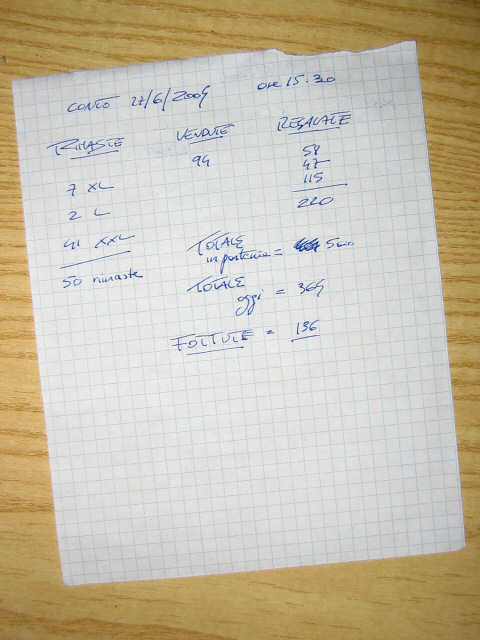 CONTO 27/6/2004 ore 15.30
RIMASTE VENDUTE REGALATE
94 58
47
7 XL 115
2 L 220
41 XXL
50 rimaste
TOTALE
in partenza = 500
TOTALE
oggi = 364
FOTTUTE = 136